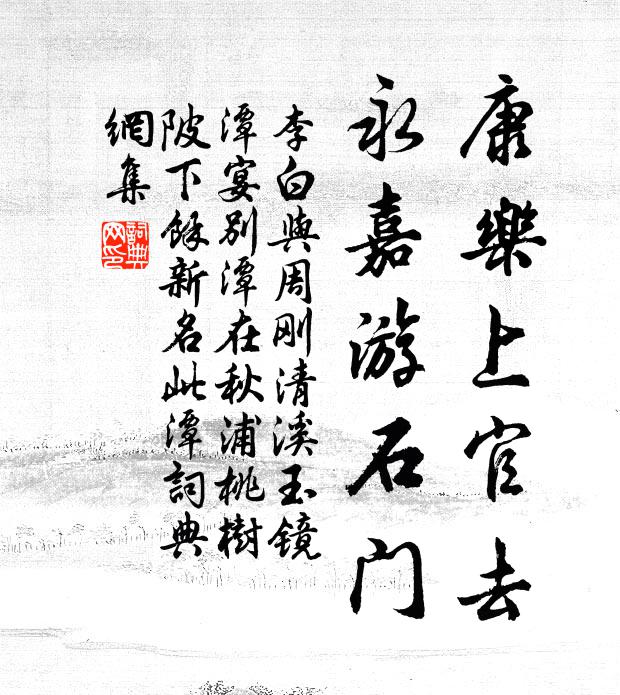 康樂上官去
永嘉游石门
李白與周刚清溪玉镜
潭宴别潭在秋浦桃樹
陂下餘新名此潭詞典
網集
詞典
网印